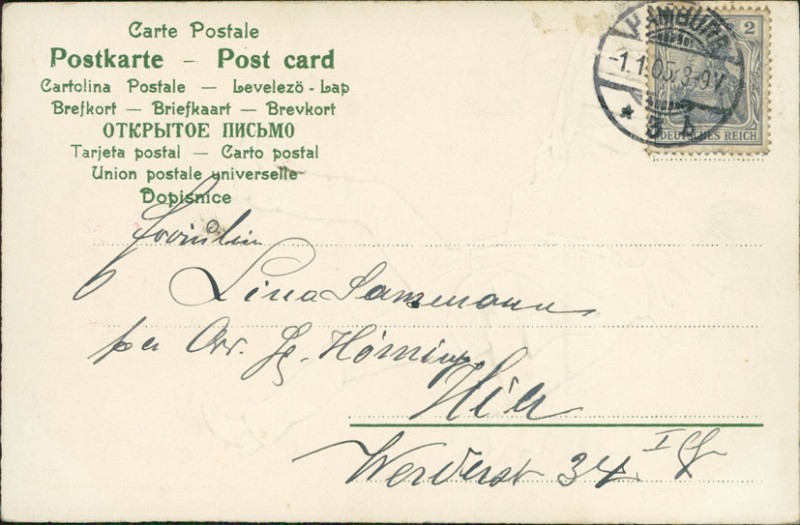 Carte Postale
Postkarte – Post card
Cartolina Postale – Levelezö-Lap
Brefkort – Briefkaart – Brevkort
ОТКРЫТОЕ ПИСЬМО
Tarjeta postal – Carto postal
Union postale universelle
Dopisnice
HAMBURG
-1.1.05. 8-9V.
* 5
2
DEUTSCHES REICH
Fräulein
Lina
Hier
Werderst 34